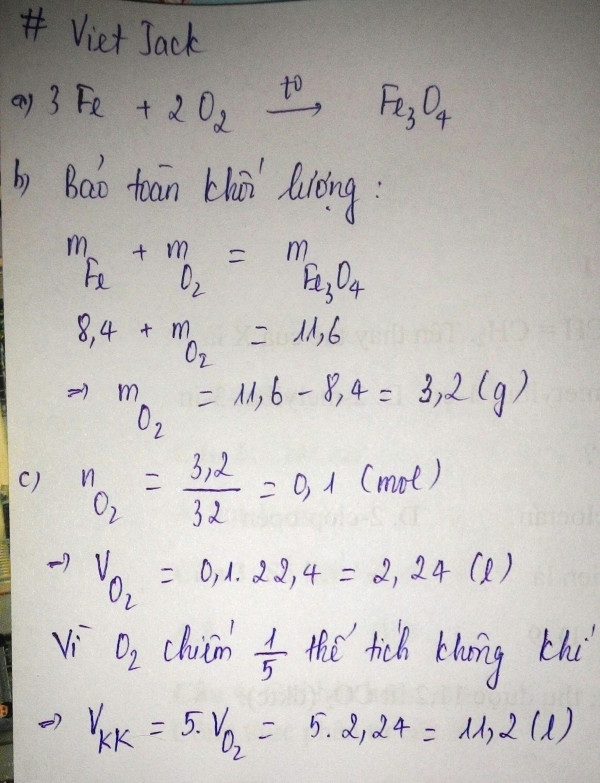 # Viet Jack
a) 3 Fe + 2 O₂ →(t⁰) Fe₃O₄
b) Bảo toàn khối lượng :
m_Fe + m_O₂ = m_Fe₃O₄
8,4 + m_O₂ = 11,6
⇒ m_O₂ = 11,6 - 8,4 = 3,2 (g)
c) n_O₂ = 3,2/32 = 0,1 (mol)
⇒ V_O₂ = 0,1. 22,4 = 2,24 (l)
Vì O₂ chiếm 1/5 thể tích không khí
⇒ V_KK = 5. V_O₂ = 5. 2,24 = 11,2 (l)